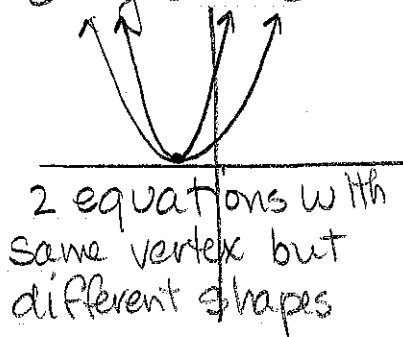 2 equations with
same vertex but
different shapes